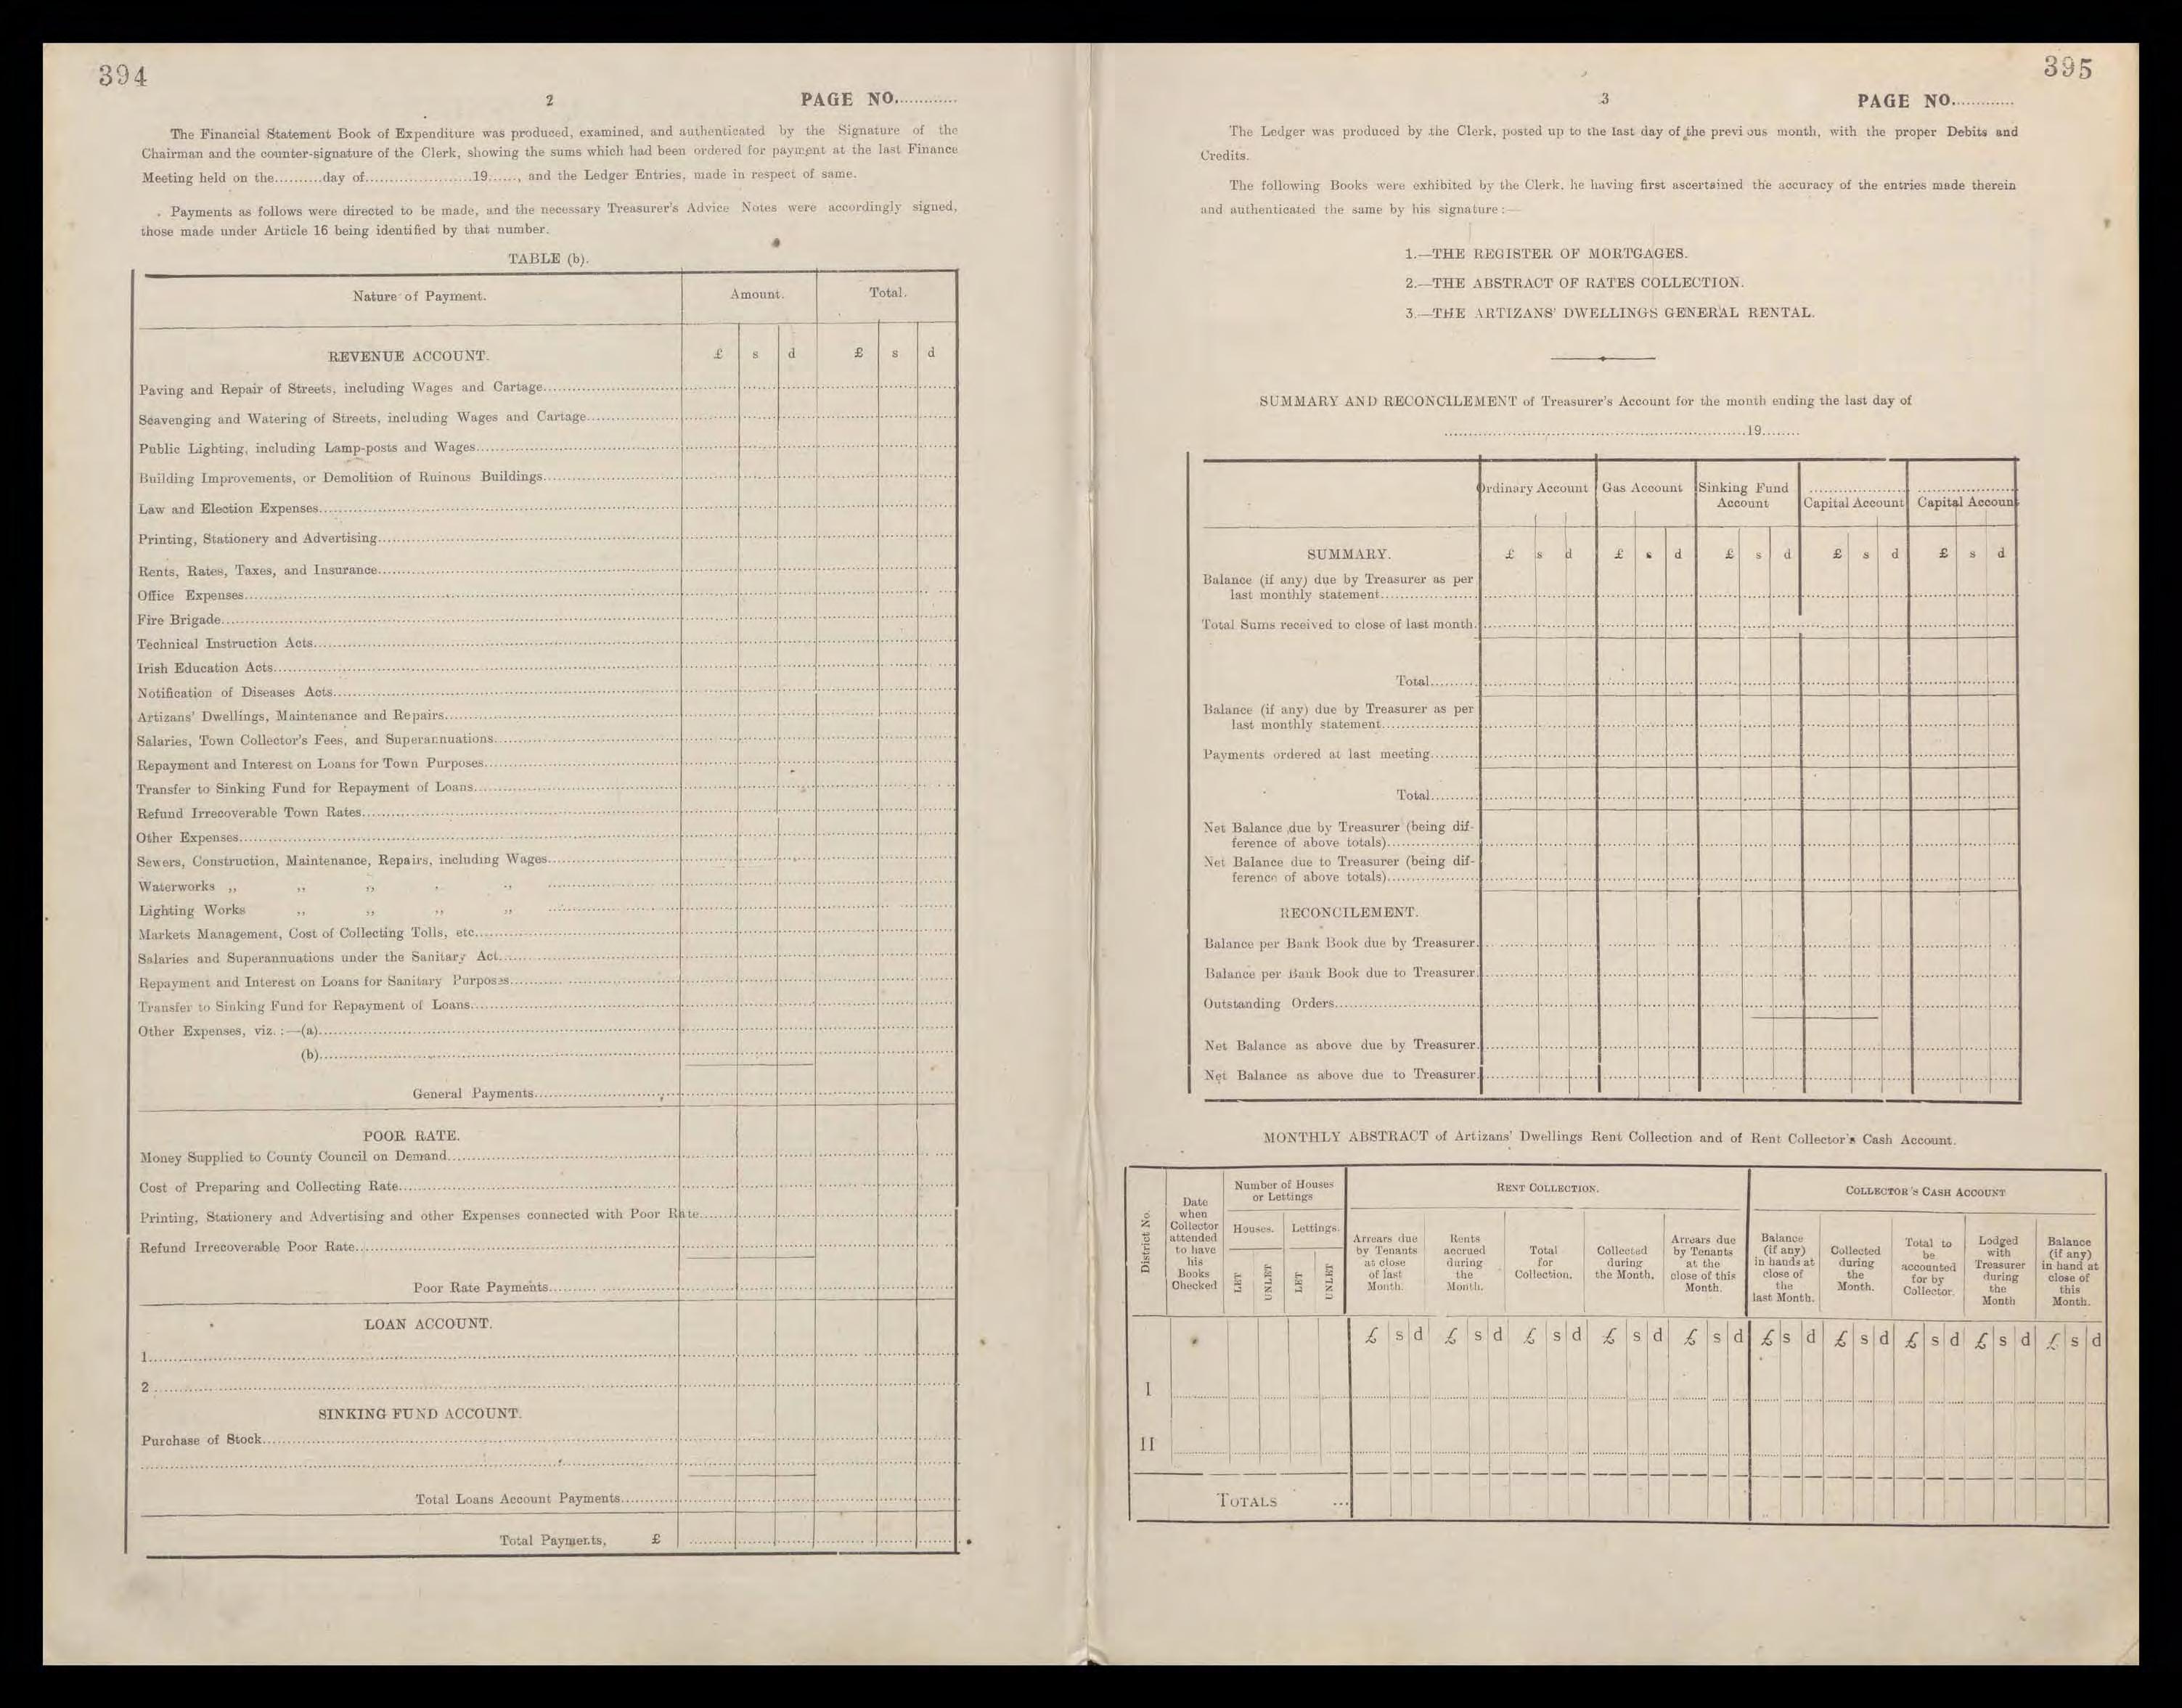 394
2 PAGE NO.............
The Financial Statement Book of Expenditure was produced, examined, and authenticated by the Signature of the
Chairman and the counter-signature of the Clerk, showing the sums which had been ordered for payment at the last Finance
Meeting held on the..........day of......................19......, and the Ledger Entries, made in respect of same.
Payments as follows were directed to be made, and the necessary Treasurer's Advice Notes were accordingly signed,
those made under Article 16 being identified by that number.
TABLE (b).
Nature of Payment. Amount. Total.
REVENUE ACCOUNT. £ s d £ s d
Paving and Repair of Streets, including Wages and Cartage
Scavenging and Watering of Streets, including Wages and Cartage
Public Lighting, including Lamp-posts and Wages
Building Improvements, or Demolition of Ruinous Buildings
Law and Election Expenses
Printing, Stationery and Advertising
Rents, Rates, Taxes, and Insurance
Office Expenses
Fire Brigade
Technical Instruction Acts
Irish Education Acts
Notification of Diseases Acts
Artizans' Dwellings, Maintenance and Repairs
Salaries, Town Collector's Fees, and Superannuations
Repayment and Interest on Loans for Town Purposes
Transfer to Sinking Fund for Repayment of Loans
Refund Irrecoverable Town Rates
Other Expenses
Sewers, Construction, Maintenance, Repairs, including Wages
Waterworks ,, ,, ,, ,, ,,
Lighting Works ,, ,, ,, ,,
Markets Management, Cost of Collecting Tolls, etc
Salaries and Superannuations under the Sanitary Act
Repayment and Interest on Loans for Sanitary Purposes
Transfer to Sinking Fund for Repayment of Loans
Other Expenses, viz. :—(a)
(b)
General Payments
POOR RATE.
Money Supplied to County Council on Demand
Cost of Preparing and Collecting Rate
Printing, Stationery and Advertising and other Expenses connected with Poor Rate
Refund Irrecoverable Poor Rate
Poor Rate Payments
LOAN ACCOUNT.
1
2
SINKING FUND ACCOUNT.
Purchase of Stock
Total Loans Account Payments
Total Payments, £
395
3 PAGE NO.............
The Ledger was produced by the Clerk, posted up to the last day of the previous month, with the proper Debits and
Credits.
The following Books were exhibited by the Clerk, he having first ascertained the accuracy of the entries made therein
and authenticated the same by his signature :—
1.—THE REGISTER OF MORTGAGES.
2.—THE ABSTRACT OF RATES COLLECTION.
3.—THE ARTIZANS' DWELLINGS GENERAL RENTAL.
SUMMARY AND RECONCILEMENT of Treasurer's Account for the month ending the last day of
..............................................................19........
Ordinary Account Gas Account Sinking Fund
Account Capital Account Capital Account
SUMMARY. £ s d £ s d £ s d £ s d £ s d
Balance (if any) due by Treasurer as per
last monthly statement
Total Sums received to close of last month
Total
Balance (if any) due by Treasurer as per
last monthly statement
Payments ordered at last meeting
Total
Net Balance due by Treasurer (being dif-
ference of above totals)
Net Balance due to Treasurer (being dif-
ference of above totals)
RECONCILEMENT.
Balance per Bank Book due by Treasurer
Balance per Bank Book due to Treasurer
Outstanding Orders
Net Balance as above due by Treasurer
Net Balance as above due to Treasurer
MONTHLY ABSTRACT of Artizans' Dwellings Rent Collection and of Rent Collector's Cash Account.
District No.
Date
when
Collector
attended
to have
his
Books
Checked
Number of Houses
or Lettings
Houses. Lettings.
LET UNLET LET UNLET
RENT COLLECTION.
Arrears due
by Tenants
at close
of last
Month.
Rents
accrued
during
the
Month.
Total
for
Collection.
Collected
during
the Month.
Arrears due
by Tenants
at the
close of this
Month.
COLLECTOR'S CASH ACCOUNT
Balance
(if any)
in hands at
close of
the
last Month.
Collected
during
the
Month.
Total to
be
accounted
for by
Collector.
Lodged
with
Treasurer
during
the
Month
Balance
(if any)
in hand at
close of
this
Month.
£ s d £ s d £ s d £ s d £ s d £ s d £ s d £ s d £ s d £ s d
I
II
TOTALS ...